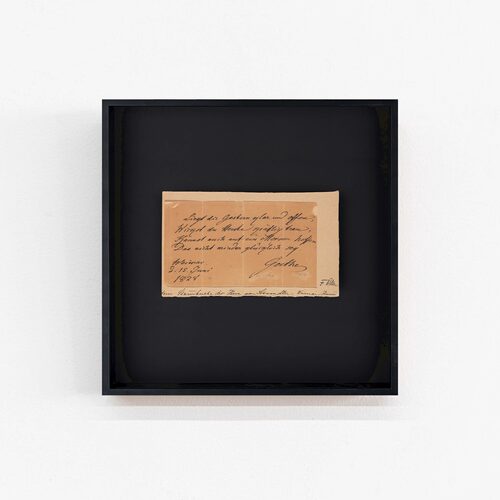 Liegt dir Gestern klar und offen,
Wirkst du Heute kräftig frey,
Kannst auch auf ein Morgen hoffen
Das nicht minder glücklich sey
Weimar
d. 15 Juni
1828
Goethe
Stammbuche des Herr von